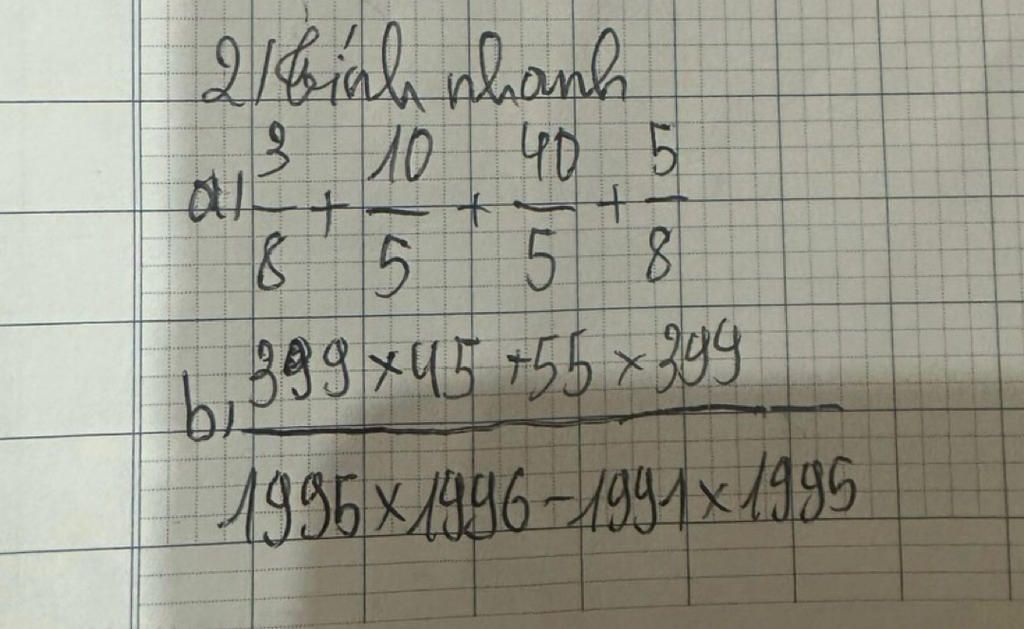 2/ tính nhanh
a) 3/8 + 10/5 + 40/5 + 5/8
b, 399 × 45 + 55 × 399
1995 × 1996 - 1991 × 1995